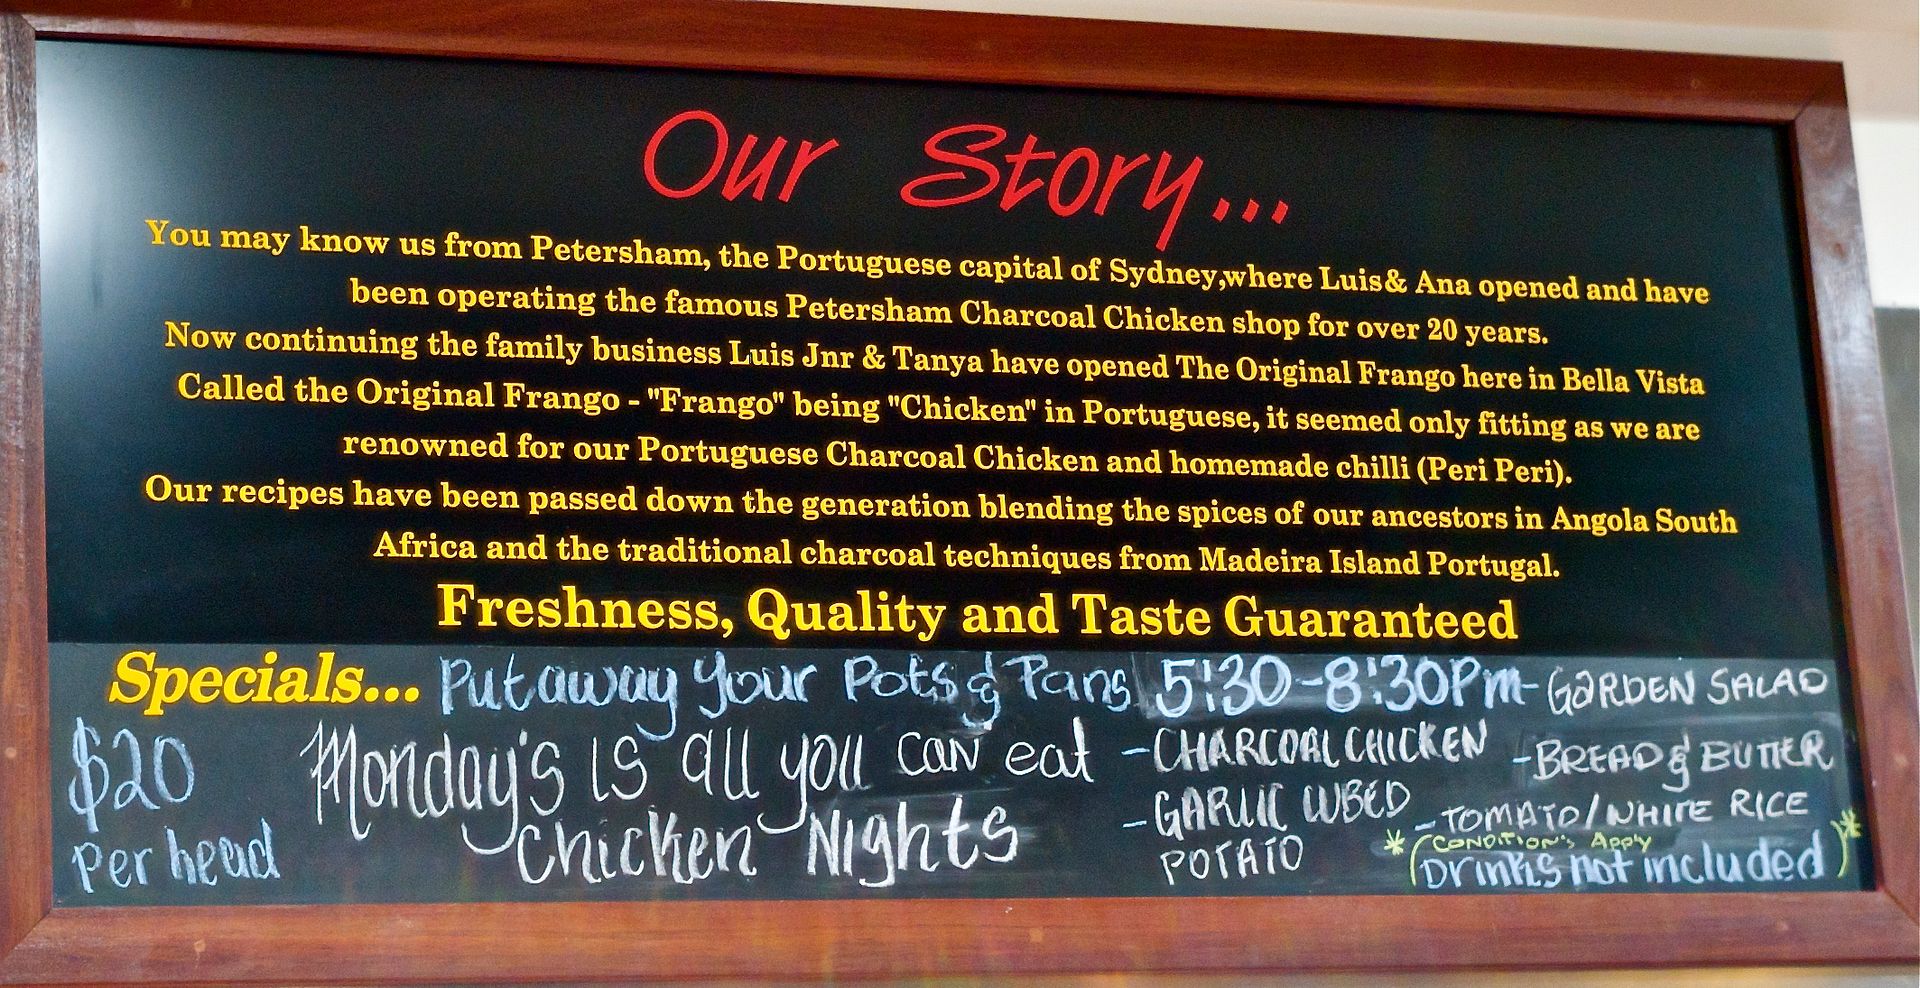 Our Story...
You may know us from Petersham, the Portuguese capital of Sydney,where Luis& Ana opened and have
been operating the famous Petersham Charcoal Chicken shop for over 20 years.
Now continuing the family business Luis Jnr & Tanya have opened The Original Frango here in Bella Vista
Called the Original Frango - "Frango" being "Chicken" in Portuguese, it seemed only fitting as we are
renowned for our Portuguese Charcoal Chicken and homemade chilli (Peri Peri).
Our recipes have been passed down the generation blending the spices of our ancestors in Angola South
Africa and the traditional charcoal techniques from Madeira Island Portugal.
Freshness, Quality and Taste Guaranteed
Specials... Put away your Pots & Pans 5:30-8:30pm
$20
per head
Monday's is all you can eat
chicken Nights
- CHARCOAL CHICKEN
- GARLIC CUBED
POTATO
- GARDEN SALAD
- BREAD & BUTTER
- TOMATO/WHITE RICE
* (CONDITION'S Apply
Drinks not included) *